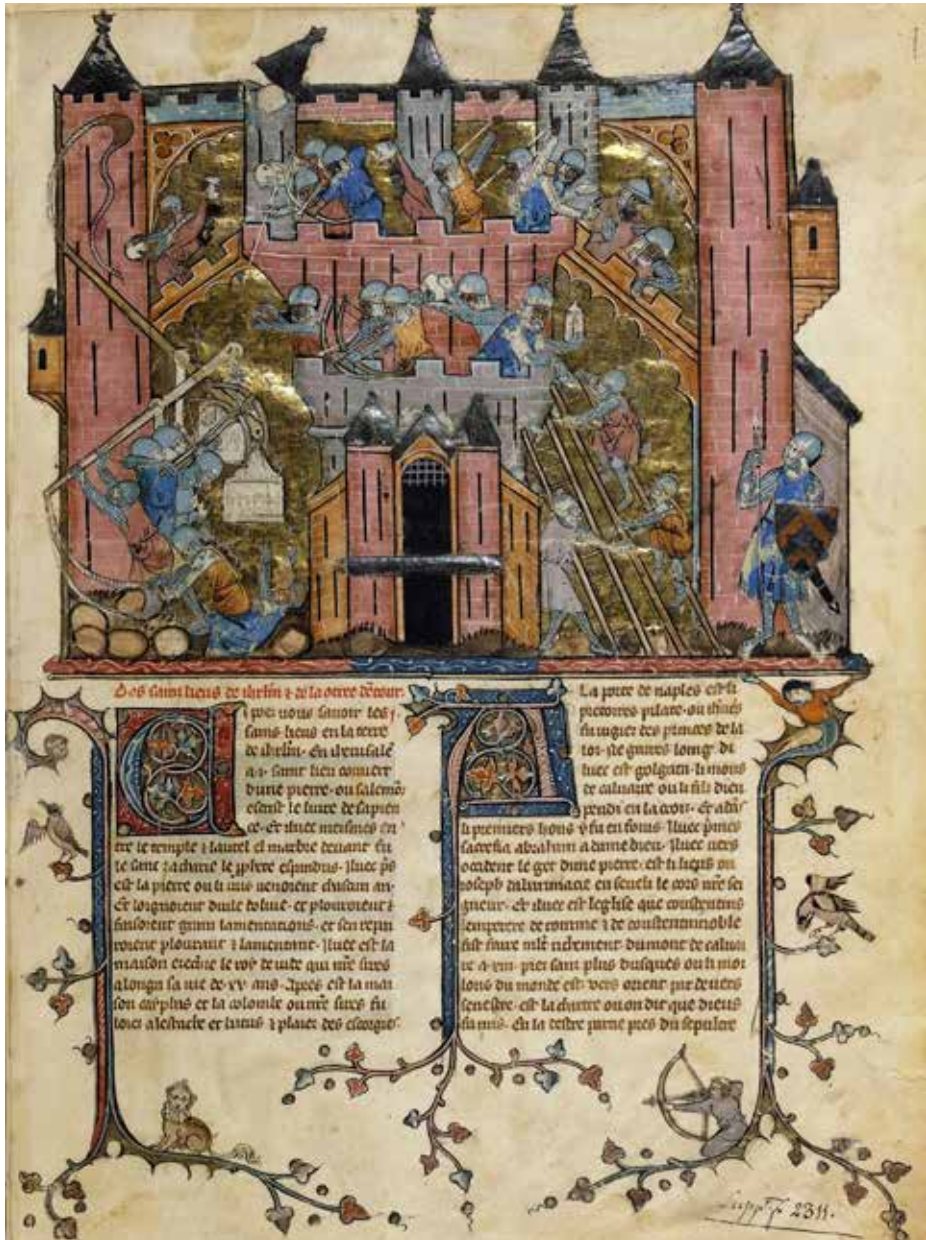 Des sains lieus de ihrl'm & de la terre dētour.
i poez vous savoir les
sains lieus en la terre
de ihrl'm. En iherusalē
a .i. saint lieu couvert
dune pierre. ou salemō
escrist le livre de sapien
ce. Et illuec meismes en
tre le temple & lautel el marbre devant fu
le sanc zacharie le prophete espandus. Illuec pres
est la pierre ou li iuis venoient chascun an.
& loignoient duile dolive. et plouroient &
faisoient grans lamentations. et sen repai
roient plourant & lamentant. Illuec est la
maison le roy
alonga sa vie de xv ans. Apres est la mai
son cayphas et la colombe ou nr̄e sires fu
loiez a lestache et batus & plaiez des escorgies
A
La porte de naples est li
pretoires pilate. ou ih'us
fu iugiez des princes de la
loi. Ne guires loing di
luec est golgata li mons
de calvaire ou li filz dieu
pendi en la croiz. Et adā
li premiers hons y fu en fouis. Illuec meismes
sacrefia abraham a dame dieu. Illuec vers
occident le get dune pierre. est li lieus ou
ioseph dabarimacie enseveli le cors nr̄e sei
gneur. Et illuec est leglise que constentins
empereres de romme & de constentinnoble
fist faire mlt richement. du mont de calvai
re a .xiii. piez sanz plus dusques ou li moi
lons du monde est. vers orient par devers
senestre. est la chartre ou on dit que dieus
fu mis. En la destre partie pres du sepulcre
2311.